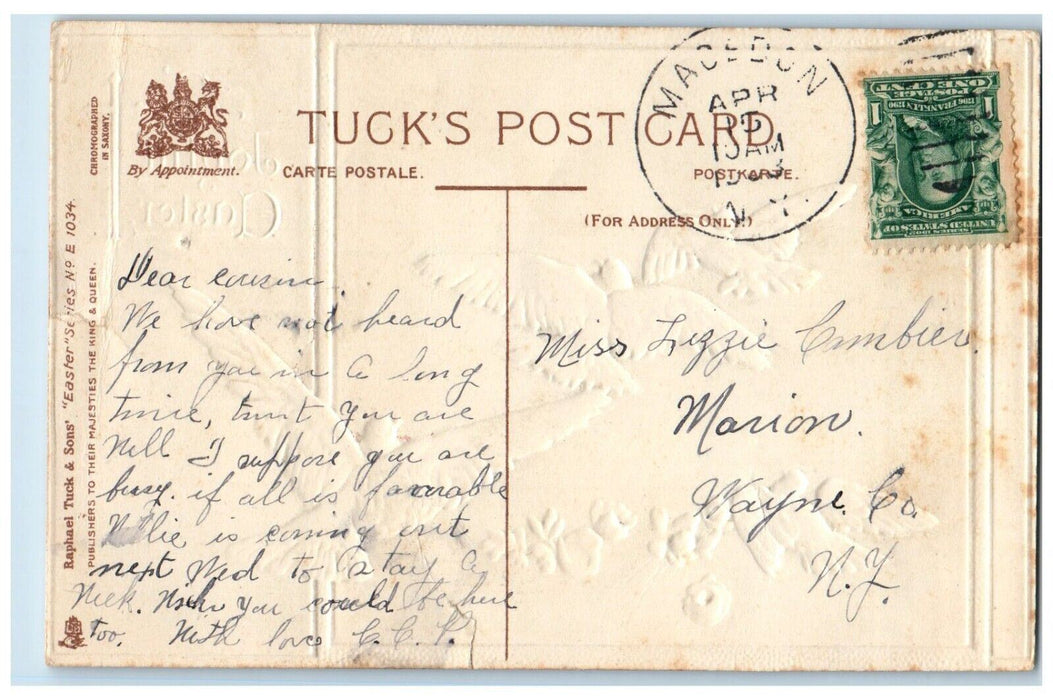 TUCK'S POST CARD.
By Appointment.
CARTE POSTALE.
POSTKARTE.
(FOR ADDRESS ONLY.)
CHROMOGRAPHED
IN SAXONY.
Raphael Tuck & Sons' "Easter" Series No E 1034.
PUBLISHERS TO THEIR MAJESTIES THE KING & QUEEN.
Joyful
Easter
MACEDON
APR
10AM
N.Y.
UNITED STATES OF
AMERICA
POSTAGE
ONE CENT
1
Dear cousin.
We have not heard
from you in a long
time, trust you are
Well I suppose you are
busy. if all is favorable
Nellie is coming out
next Wed to stay a
Week. Wish you could be here
too. With love C.C.
Miss Lizzie
Marion.
Wayne. Co.
N.Y.